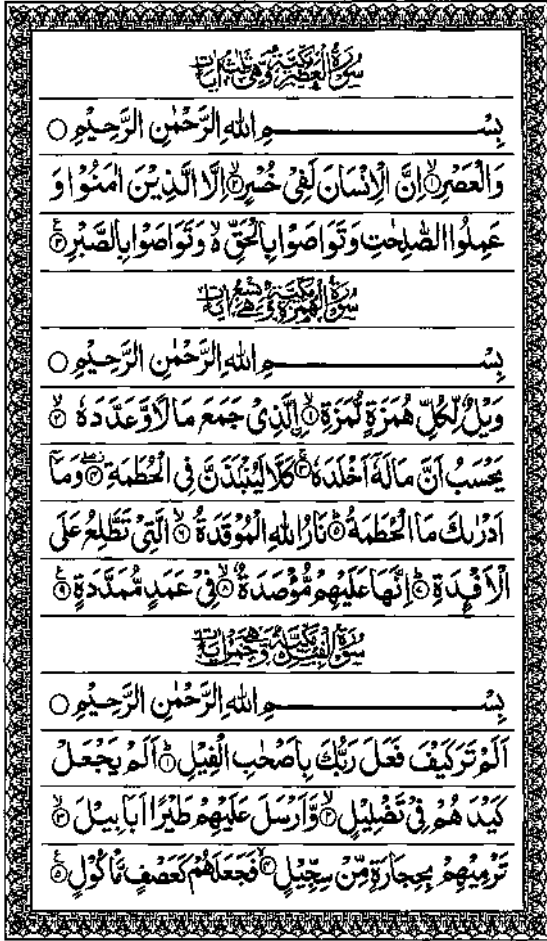 سُوْرَةُ الْعَصْرِ مَكِّيَّةٌ وَّهِىَ ثَلٰثُ اٰيَاتٍ
بِسْــــــــــــــــمِ اللهِ الرَّحْمٰنِ الرَّحِيْمِ ○
وَالْعَصْرِ ۙ‏﴿۱﴾ اِنَّ الْاِنْسَانَ لَفِىْ خُسْرٍ ۙ‏﴿۲﴾ اِلَّا الَّذِيْنَ اٰمَنُوْا وَ
عَمِلُوا الصّٰلِحٰتِ وَتَوَاصَوْا بِالْحَقِّ ۙ وَتَوَاصَوْا بِالصَّبْرِ ﴿۳﴾ ع
سُوْرَةُ الْهُمَزَةِ مَكِّيَّةٌ وَّهِىَ تِسْعُ اٰيَاتٍ
بِسْــــــــــــــــمِ اللهِ الرَّحْمٰنِ الرَّحِيْمِ ○
وَيْلٌ لِّكُلِّ هُمَزَةٍ لُّمَزَةِ ۙ‏﴿۱﴾ اِۨلَّذِىْ جَمَعَ مَالًا وَّعَدَّدَهٗ ۙ‏﴿۲﴾
يَحْسَبُ اَنَّ مَالَهٗۤ اَخْلَدَهٗ ۚ‏﴿۳﴾ كَلَّا لَيُنْۢبَذَنَّ فِى الْحُطَمَةِ ۖ‏﴿۴﴾ وَمَاۤ
اَدْرٰىكَ مَا الْحُطَمَةُ ؕ‏﴿۵﴾ نَارُ اللهِ الْمُوْقَدَةُ ۙ‏﴿۶﴾ الَّتِىْ تَطَّلِعُ عَلَى
الْاَفْـِٕدَةِ ؕ‏﴿۷﴾ اِنَّهَا عَلَيْهِمْ مُّؤْصَدَةٌ ۙ‏﴿۸﴾ فِىْ عَمَدٍ مُّمَدَّدَةٍ ﴿۹﴾ ع
سُوْرَةُ الْفِيْلِ مَكِّيَّةٌ وَّهِىَ خَمْسُ اٰيَاتٍ
بِسْــــــــــــــــمِ اللهِ الرَّحْمٰنِ الرَّحِيْمِ ○
اَلَمْ تَرَ كَيْفَ فَعَلَ رَبُّكَ بِاَصْحٰبِ الْفِيْلِ ؕ‏﴿۱﴾ اَلَمْ يَجْعَلْ
كَيْدَهُمْ فِىْ تَضْلِيْلٍ ۙ‏﴿۲﴾ وَّاَرْسَلَ عَلَيْهِمْ طَيْرًا اَبَابِيْلَ ۙ‏﴿۳﴾
تَرْمِيْهِمْ بِحِجَارَةٍ مِّنْ سِجِّيْلٍ ۙ‏﴿۴﴾ فَجَعَلَهُمْ كَعَصْفٍ مَّاْكُوْلٍ ﴿۵﴾ ع